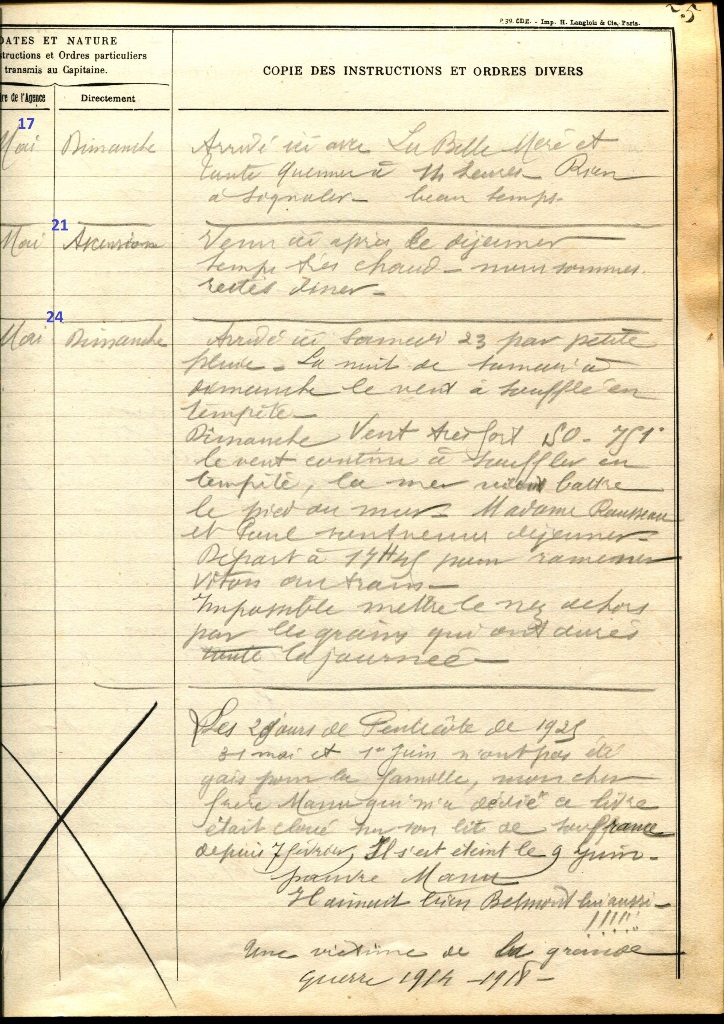 75
P.39. CDE. - Imp. H. Langlois & Cie, Paris.
DATES ET NATURE
structions et Ordres particuliers
transmis au Capitaine.
ire de l'Agence
Directement
COPIE DES INSTRUCTIONS ET ORDRES DIVERS
17
Mai Dimanche
Arrivé ici avec La Belle Mère et
tante à 11 heures Rien
à signaler - beau temps.
21
Mai Ascension
Venu ici après le déjeuner
temps très chaud - nous sommes
restés diner -
24
Mai Dimanche
Arrivé ici Samedi 23 par petite
pluie - La nuit de samedi à
dimanche le vent à soufflé en
tempête -
Dimanche Vent très fort SO - 751°
le vent continu à souffler en
tempête, la mer vient battre
le pied du mur - Madame Rousseau
et Paul sont venus déjeuner -
Départ à 17H45 pour ramener
au train -
Impossible mettre le nez dehors
par les grains qui ont durés
toute la journée -
Les 2 jours de Pentecôte de 1925
31 mai et 1er Juin n'ont pas été
gais pour la famille, mon cher
frère Manu qui m'a dédié ce livre
était cloué sur son lit de souffrance
depuis 7 février, Il s'est éteint le 9 Juin -
pauvre Manu
Il aimait bien Belmont lui aussi -
!!!!!
Une victime de la grande
Guerre 1914 - 1918 -